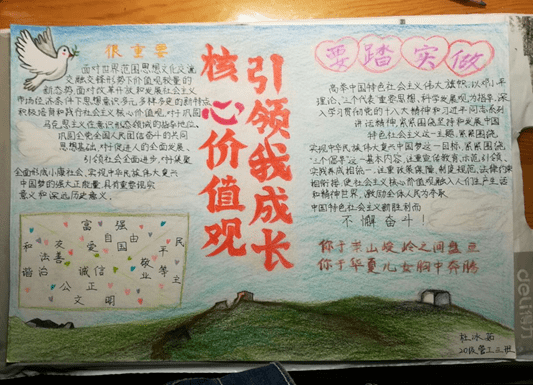 很重要
面对世界范围思想文化交流
交融交锋形势下价值观较量的
新态势,面对改革开放和发展社会主义
市场经济条件下思想意识多元多样多变的新特点
积极培育和践行社会主义核心价值观,对于巩固
马克思主义在意识形态领域的指导地位、
巩固全党全国人民团结奋斗的共同
思想基础,对于促进人的全面发展、
引领社会全面进步,对于集聚
全面建成小康社会、实现中华民族伟大复兴
中国梦的强大正能量,具有重要现实
意义和深远历史意义。
富强
自由
和 友善 爱国 平等 民主
谐 法治 诚信 敬业
公正
文明
核心价值观
引领我成长
要踏实做
高举中国特色社会主义伟大旗帜,以邓小平
理论、三个代表重要思想、科学发展观为指导,深
入学习贯彻党的十八大精神和习近平同志系列
讲话精神,紧紧围绕坚持和发展中国
特色社会主义这一主题,紧紧围绕
实现中华民族伟大复兴中国梦这一目标,紧紧围绕
"三个倡导"这一基本内容,注重宣传教育、示范引领、
实践养成相统一,注重政策保障、制度规范、法律约束
相衔接,使社会主义核心价值观融入人们生产生活
和精神世界,激励全体人民为夺取
中国特色社会主义新胜利而
不懈奋斗!
你于崇山峻岭之间盘亘
你于华夏儿女胸中奔腾
20级管工三班
deli得力